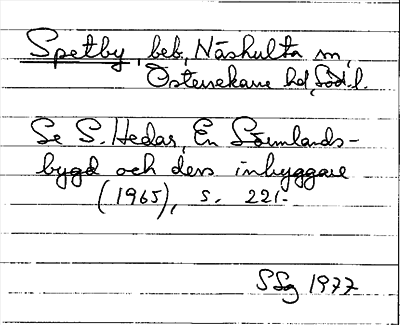 Spetby, beb, Näshulta sn,
Österrekarne hd, Södl.
Se S. Hedar, En Sörmlands-
bygd och dess inbyggare
(1965), s. 221.
SSg 1977